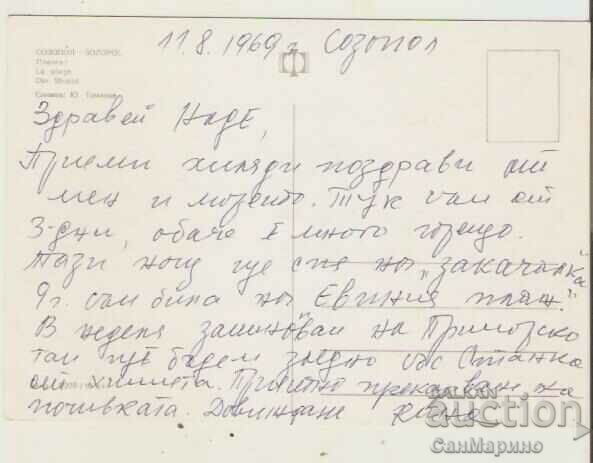 11.8.1969 г. Созопол
СОЗОПОЛ - SOZOPOL
Плажът
La plage
Der Strand
Снимка: Ю.
Здравей Наде,
Приеми хиляди поздрави от
мен и морето. Тук съм от
3-дни, обаче е много горещо.
Тази нощ ще спя на "закачалка"
9 г. съм била на Евиния плаж."
В неделя заминавам на Приморско
там ще бъдем заедно със Станка
от химията. Приятно прекарване на
почивката. Довиждане
BALKAN
auction
СанМарино